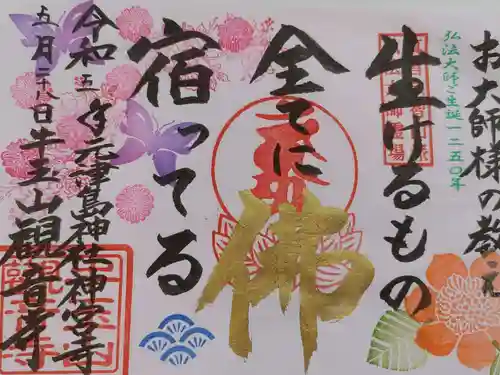 お大師様の教え
弘法大師ご生誕一二五〇年
生けるもの
全てに
佛
宿ってる
令和五年元津島神社神宮寺
五月二十八日牛玉山観音寺